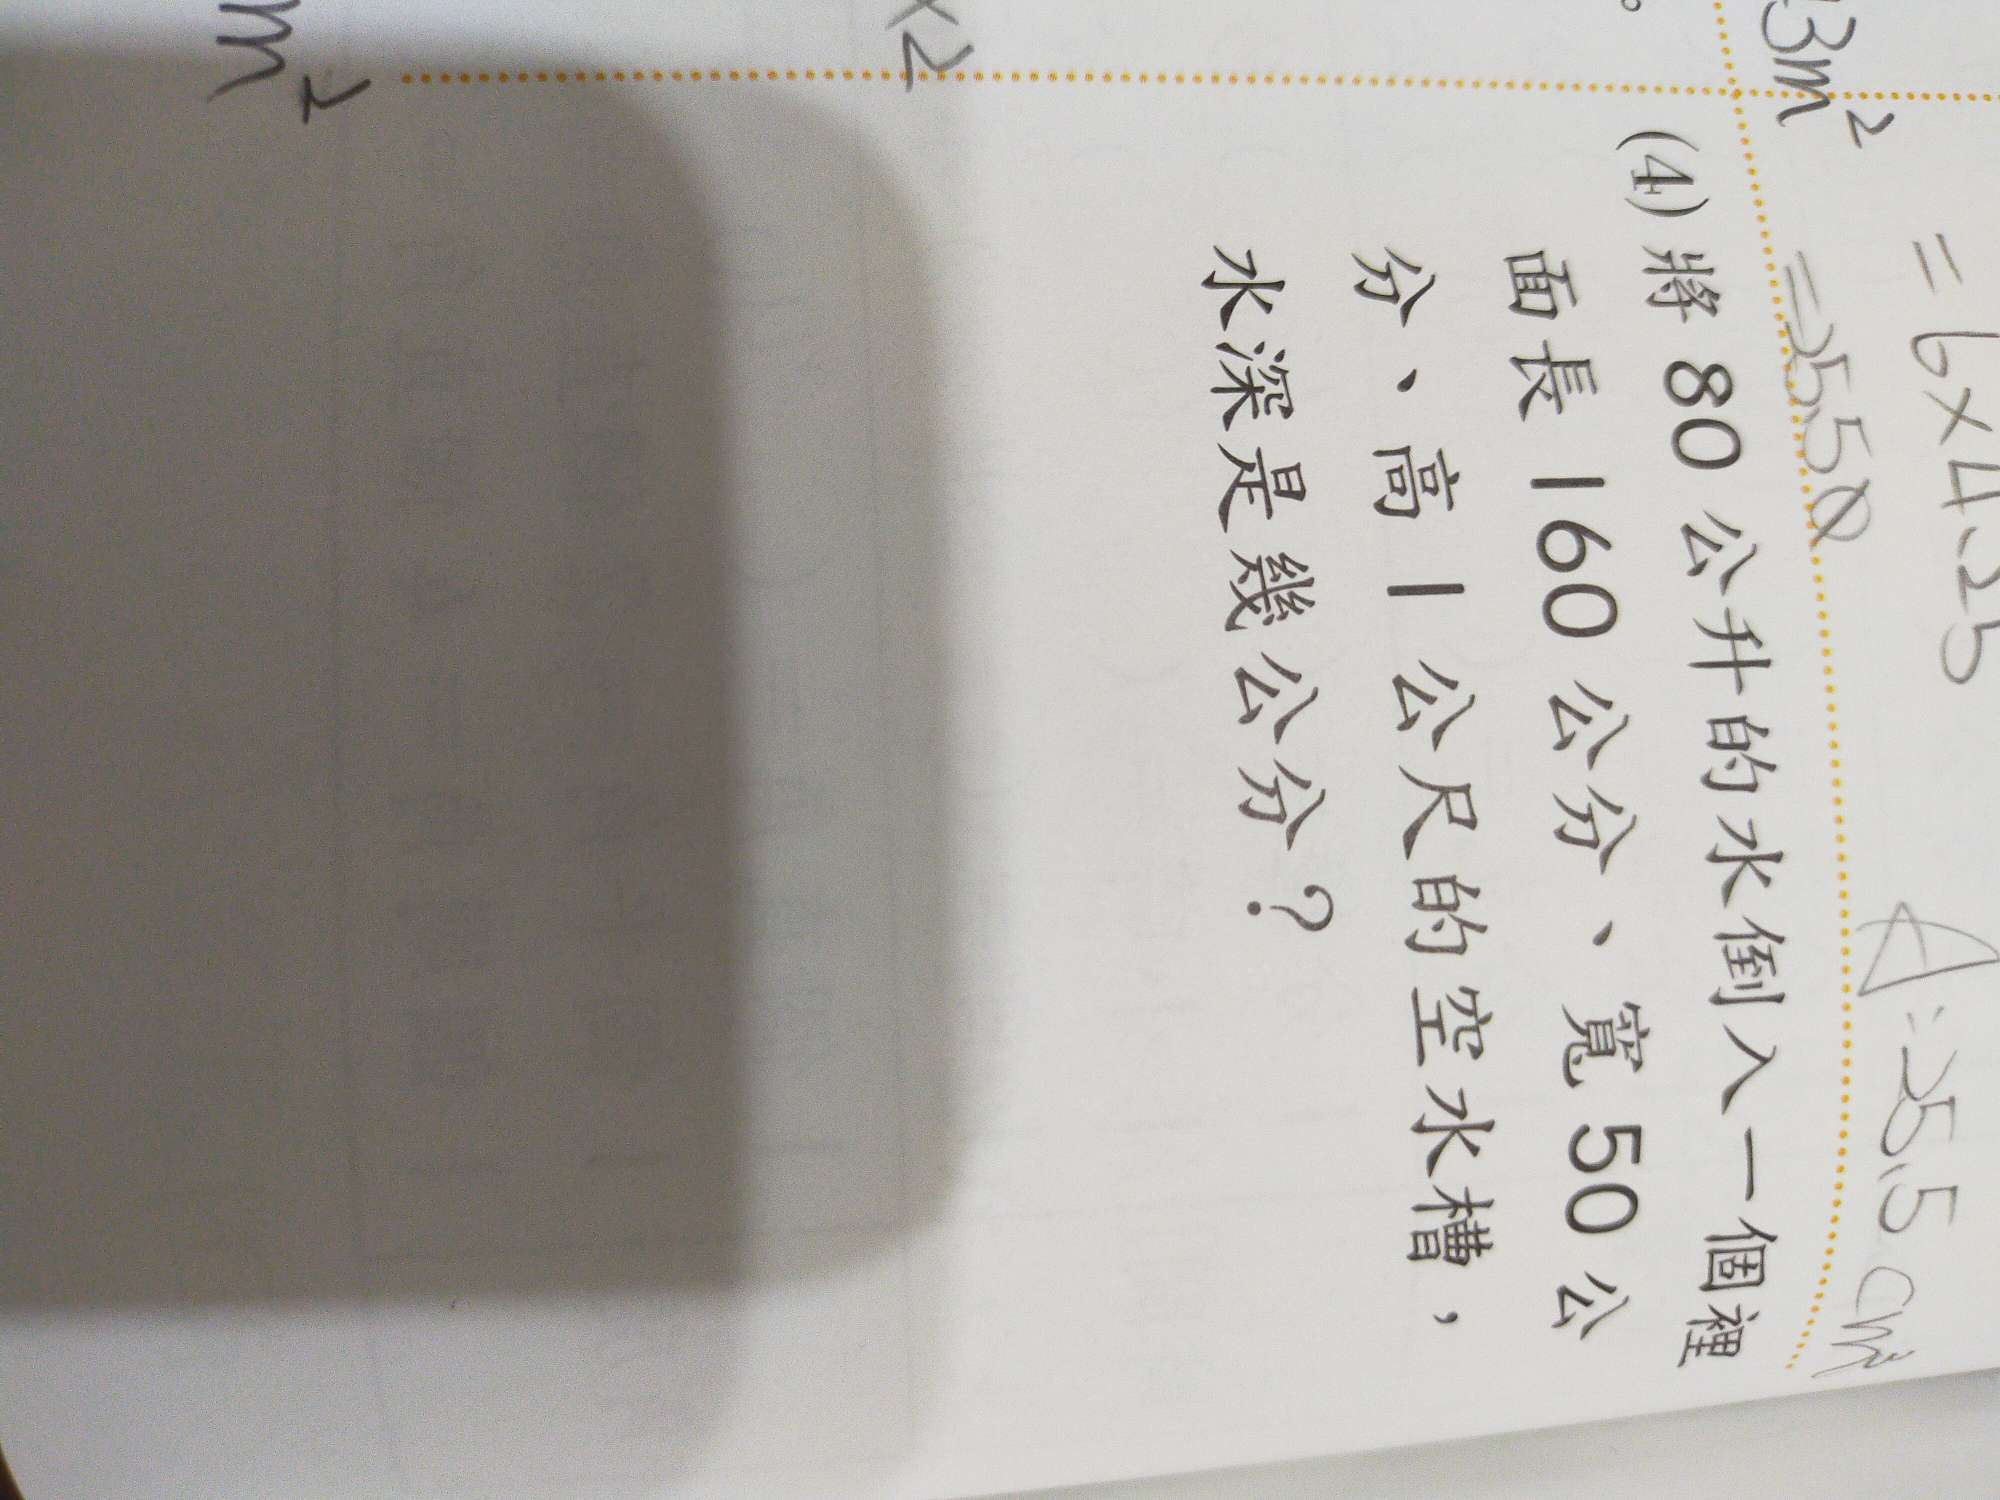 = 6×4.25
13m²
= 25.50
A: 25.5 cm²
(4) 將 80 公升的水倒入一個裡
面長 160 公分、寬 50 公
分、高 1 公尺的空水槽，
水深是幾公分？
×2
m²